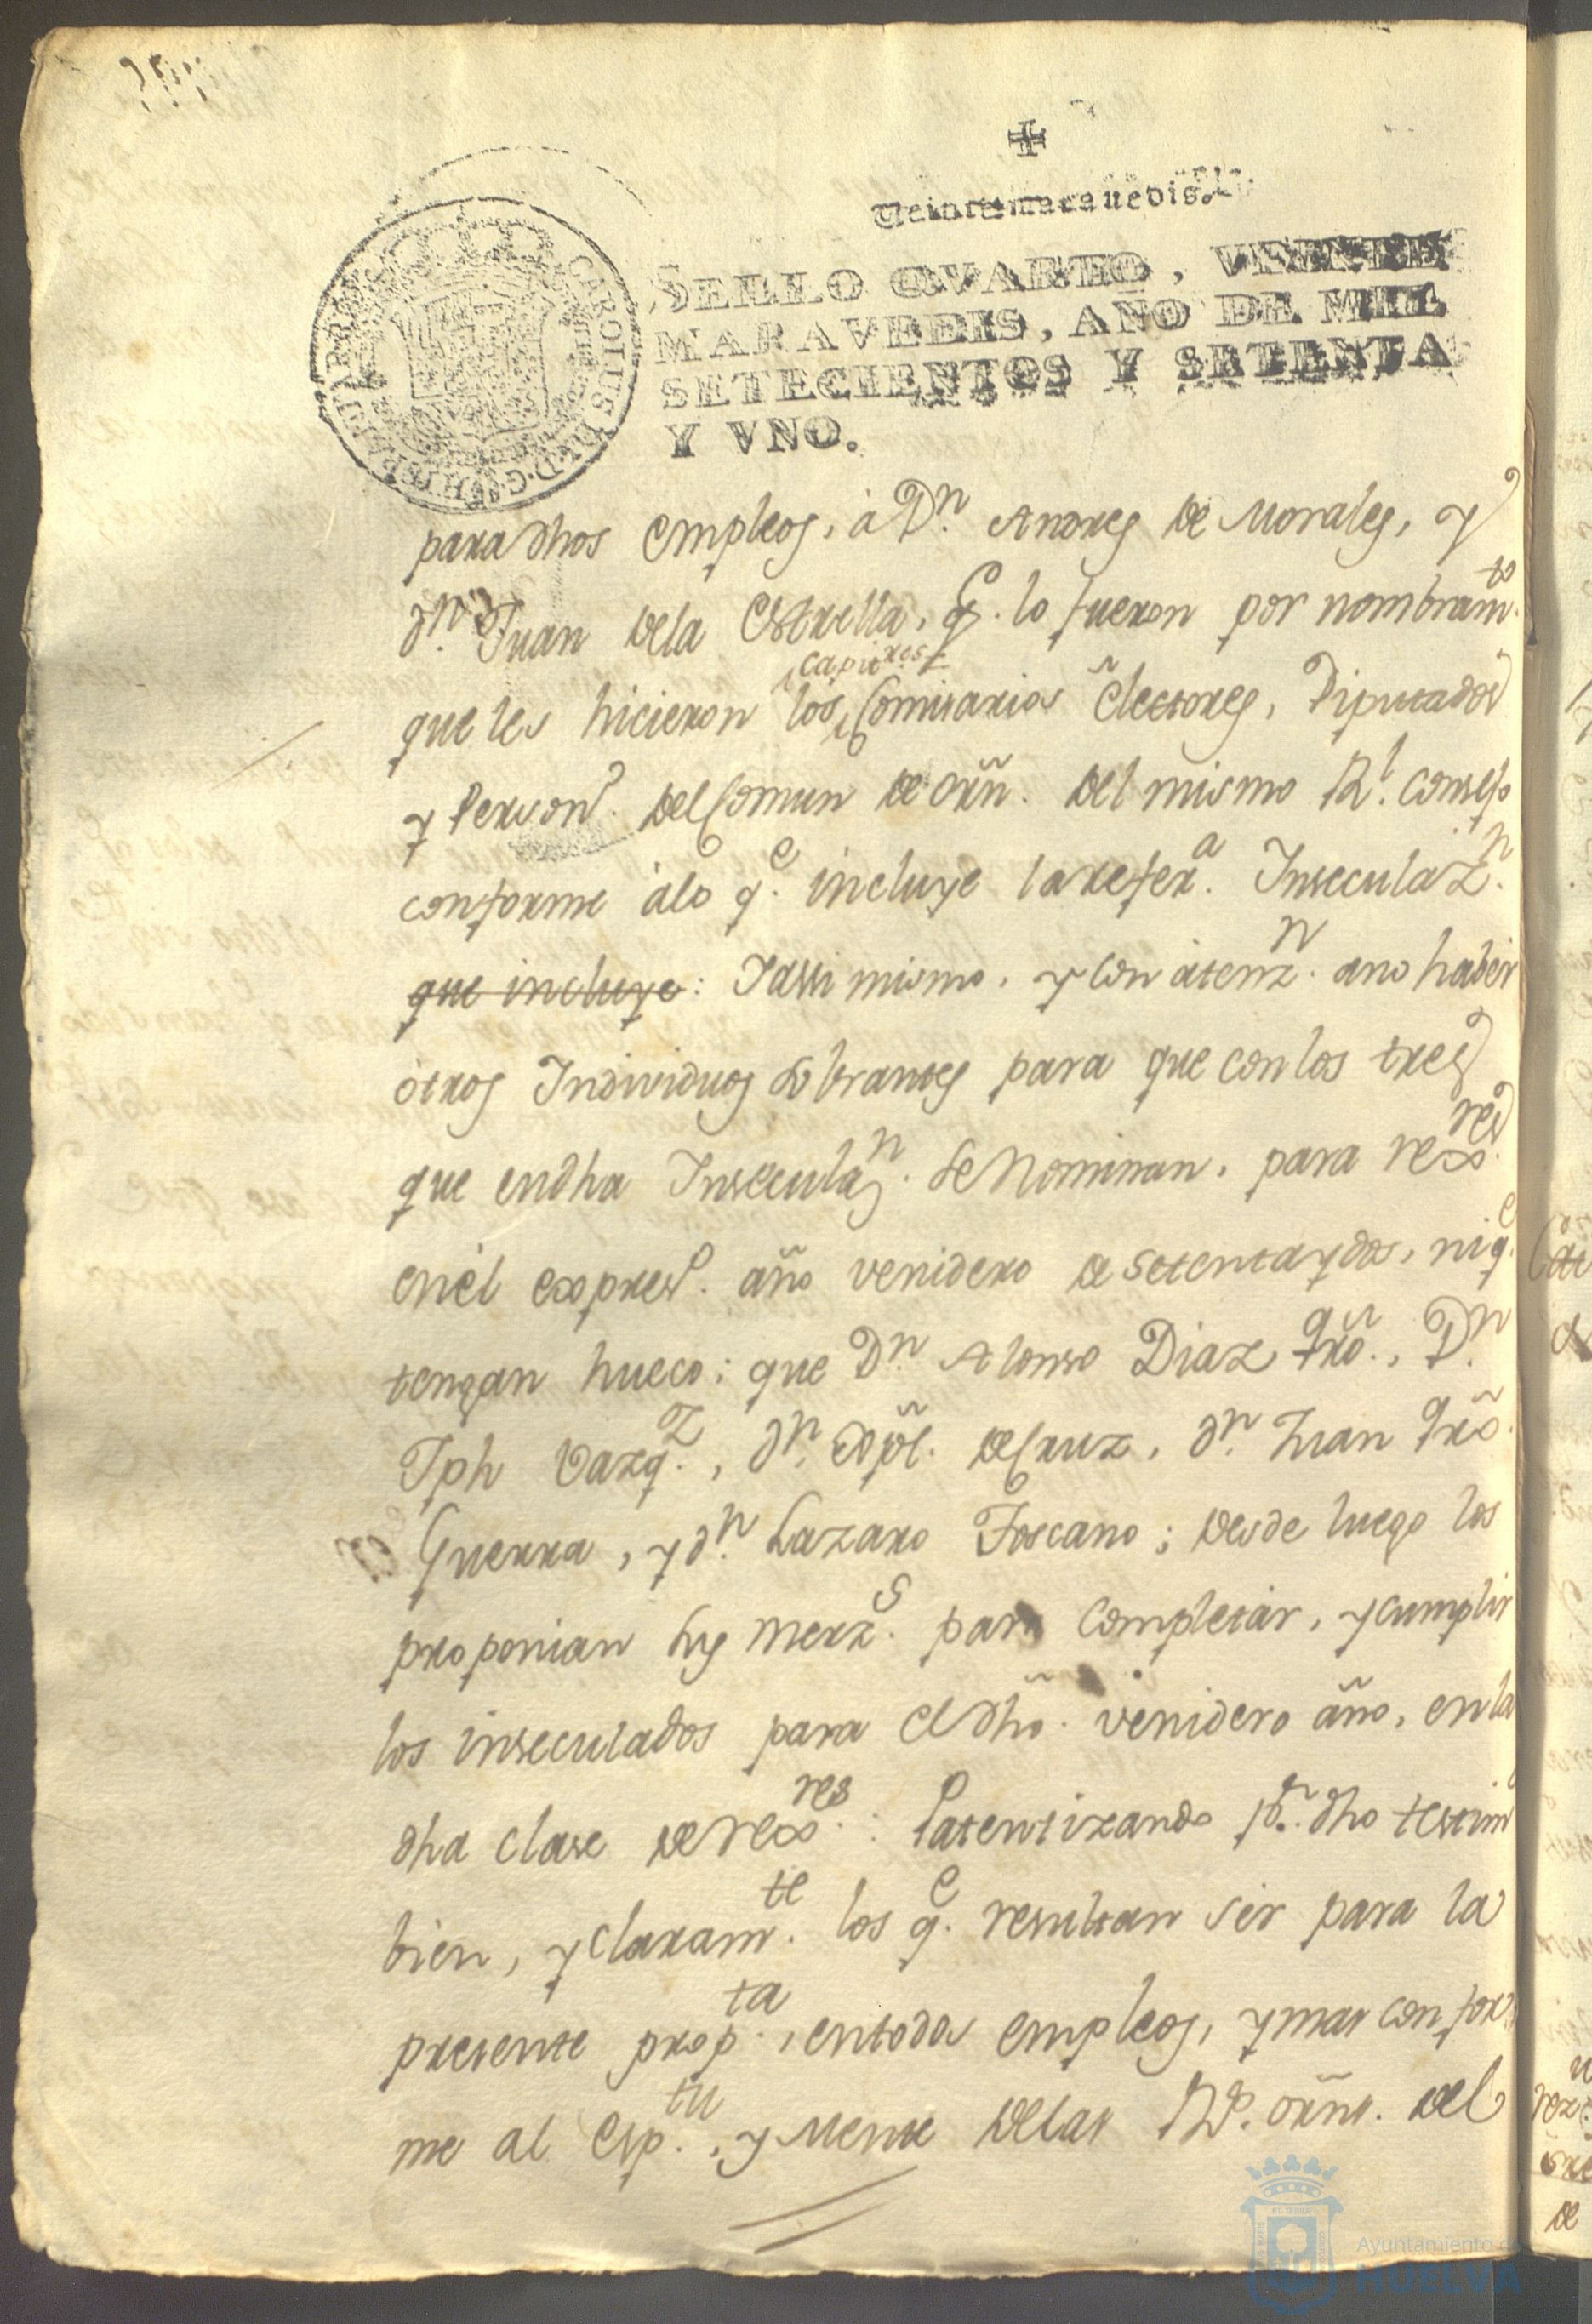 Veinte maravedis.
SELLO QVARTO, VEINTE
MARAVEDIS, AÑO DE MIL
SETECIENTOS Y SETENTA
Y VNO.
para dhos empleos, à Dn. Andres de Morales, y
dn. Juan dela Estrella, q. lo fueron por nombramto.
capitres
que les hicieron los Comisarios Electores, Diputados
y Person.o del Comun de orñ. del mismo Rl. Consejo
conforme àlo qe. incluye la refera. Inseculazn.
que incluye: Y assi mismo, y con atenzn. ano haber
otros Individuos sobrantes para que con los tres
que en dha Inseculazn. se Nominan, para rexres.
en èl expreso. año venidero de setenta y dos, ni qe.
tengan hueco; que Dn. Alonso Diaz qrõ., Dn.
Jph Vazqz., dn. Xpl. de Cruz, dn. Juan qrõ.
Guerra, y dn. Lazaro Toscano; desde luego los
proponian sus merzs. para completar, y cumplir
los inseculados para el dhõ. venidero año, en la
dha clase de rexres.: Patentizando pr. dho testim
bien, y claramte. los qe. resultan ser para la
presente propta., en todos empleos, y mas confor
me al Esptu., y Mente delas Rs. orñs. del
Ayuntamiento de
HUELVA